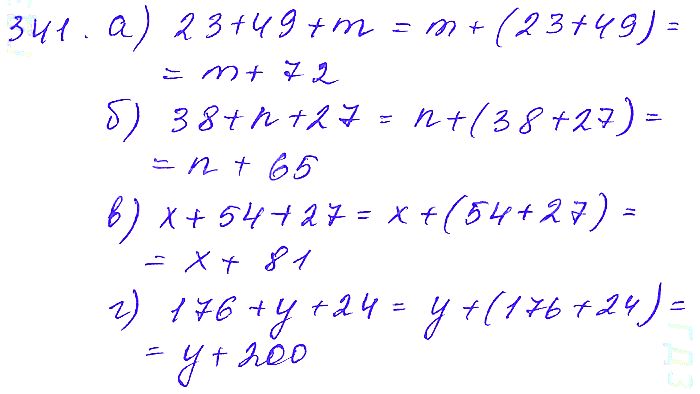 341. а) 23+49+m = m+(23+49) =
= m+72
б) 38+n+27 = n+(38+27) =
= n + 65
в) x+54+27 = x+(54+27) =
= x+ 81
г) 176+y+24 = y+(176+24) =
= y+200